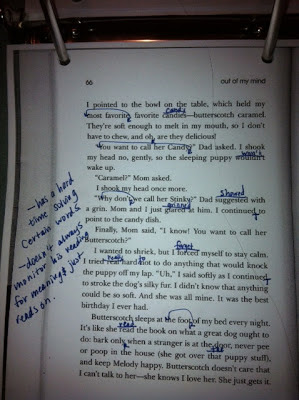 66
out of my mind
I pointed to the bowl on the table, which held my
candy
most favorite, favorite candies—butterscotch caramel.
They're soft enough to melt in my mouth, so I don't
have to chew, and oh, are they delicious!
"You want to call her Candy?" Dad asked. I shook
wasn't
my head no, gently, so the sleeping puppy wouldn't
wake up.
"Caramel?" Mom asked.
I shook my head once more.
shared
"Why don't we call her Stinky?" Dad suggested with
grinned
a grin. Mom and I just glared at him. I continued to
point to the candy dish.
Finally, Mom said, "I know! You want to call her
Butterscotch?"
forget
I wanted to shriek, but I forced myself to stay calm.
really
I tried real hard not to do anything that would knock
the puppy off my lap. "Uh," I said softly as I continued
to stroke the dog's silky fur. I didn't know that anything
could be so soft. And she was all mine. It was the best
birthday I ever had.
Butterscotch sleeps at the foot of my bed every night.
read
It's like she read the book on what a great dog ought to
do: bark only when a stranger is at the door, never pee
the
or poop in the house (she got over that puppy stuff),
and keep Melody happy. Butterscotch doesn't care that
I can't talk to her—she knows I love her. She just gets it.
-has a hard
time solving
certain words
-doesn't always
monitor his reading
for meaning & just
reads on.